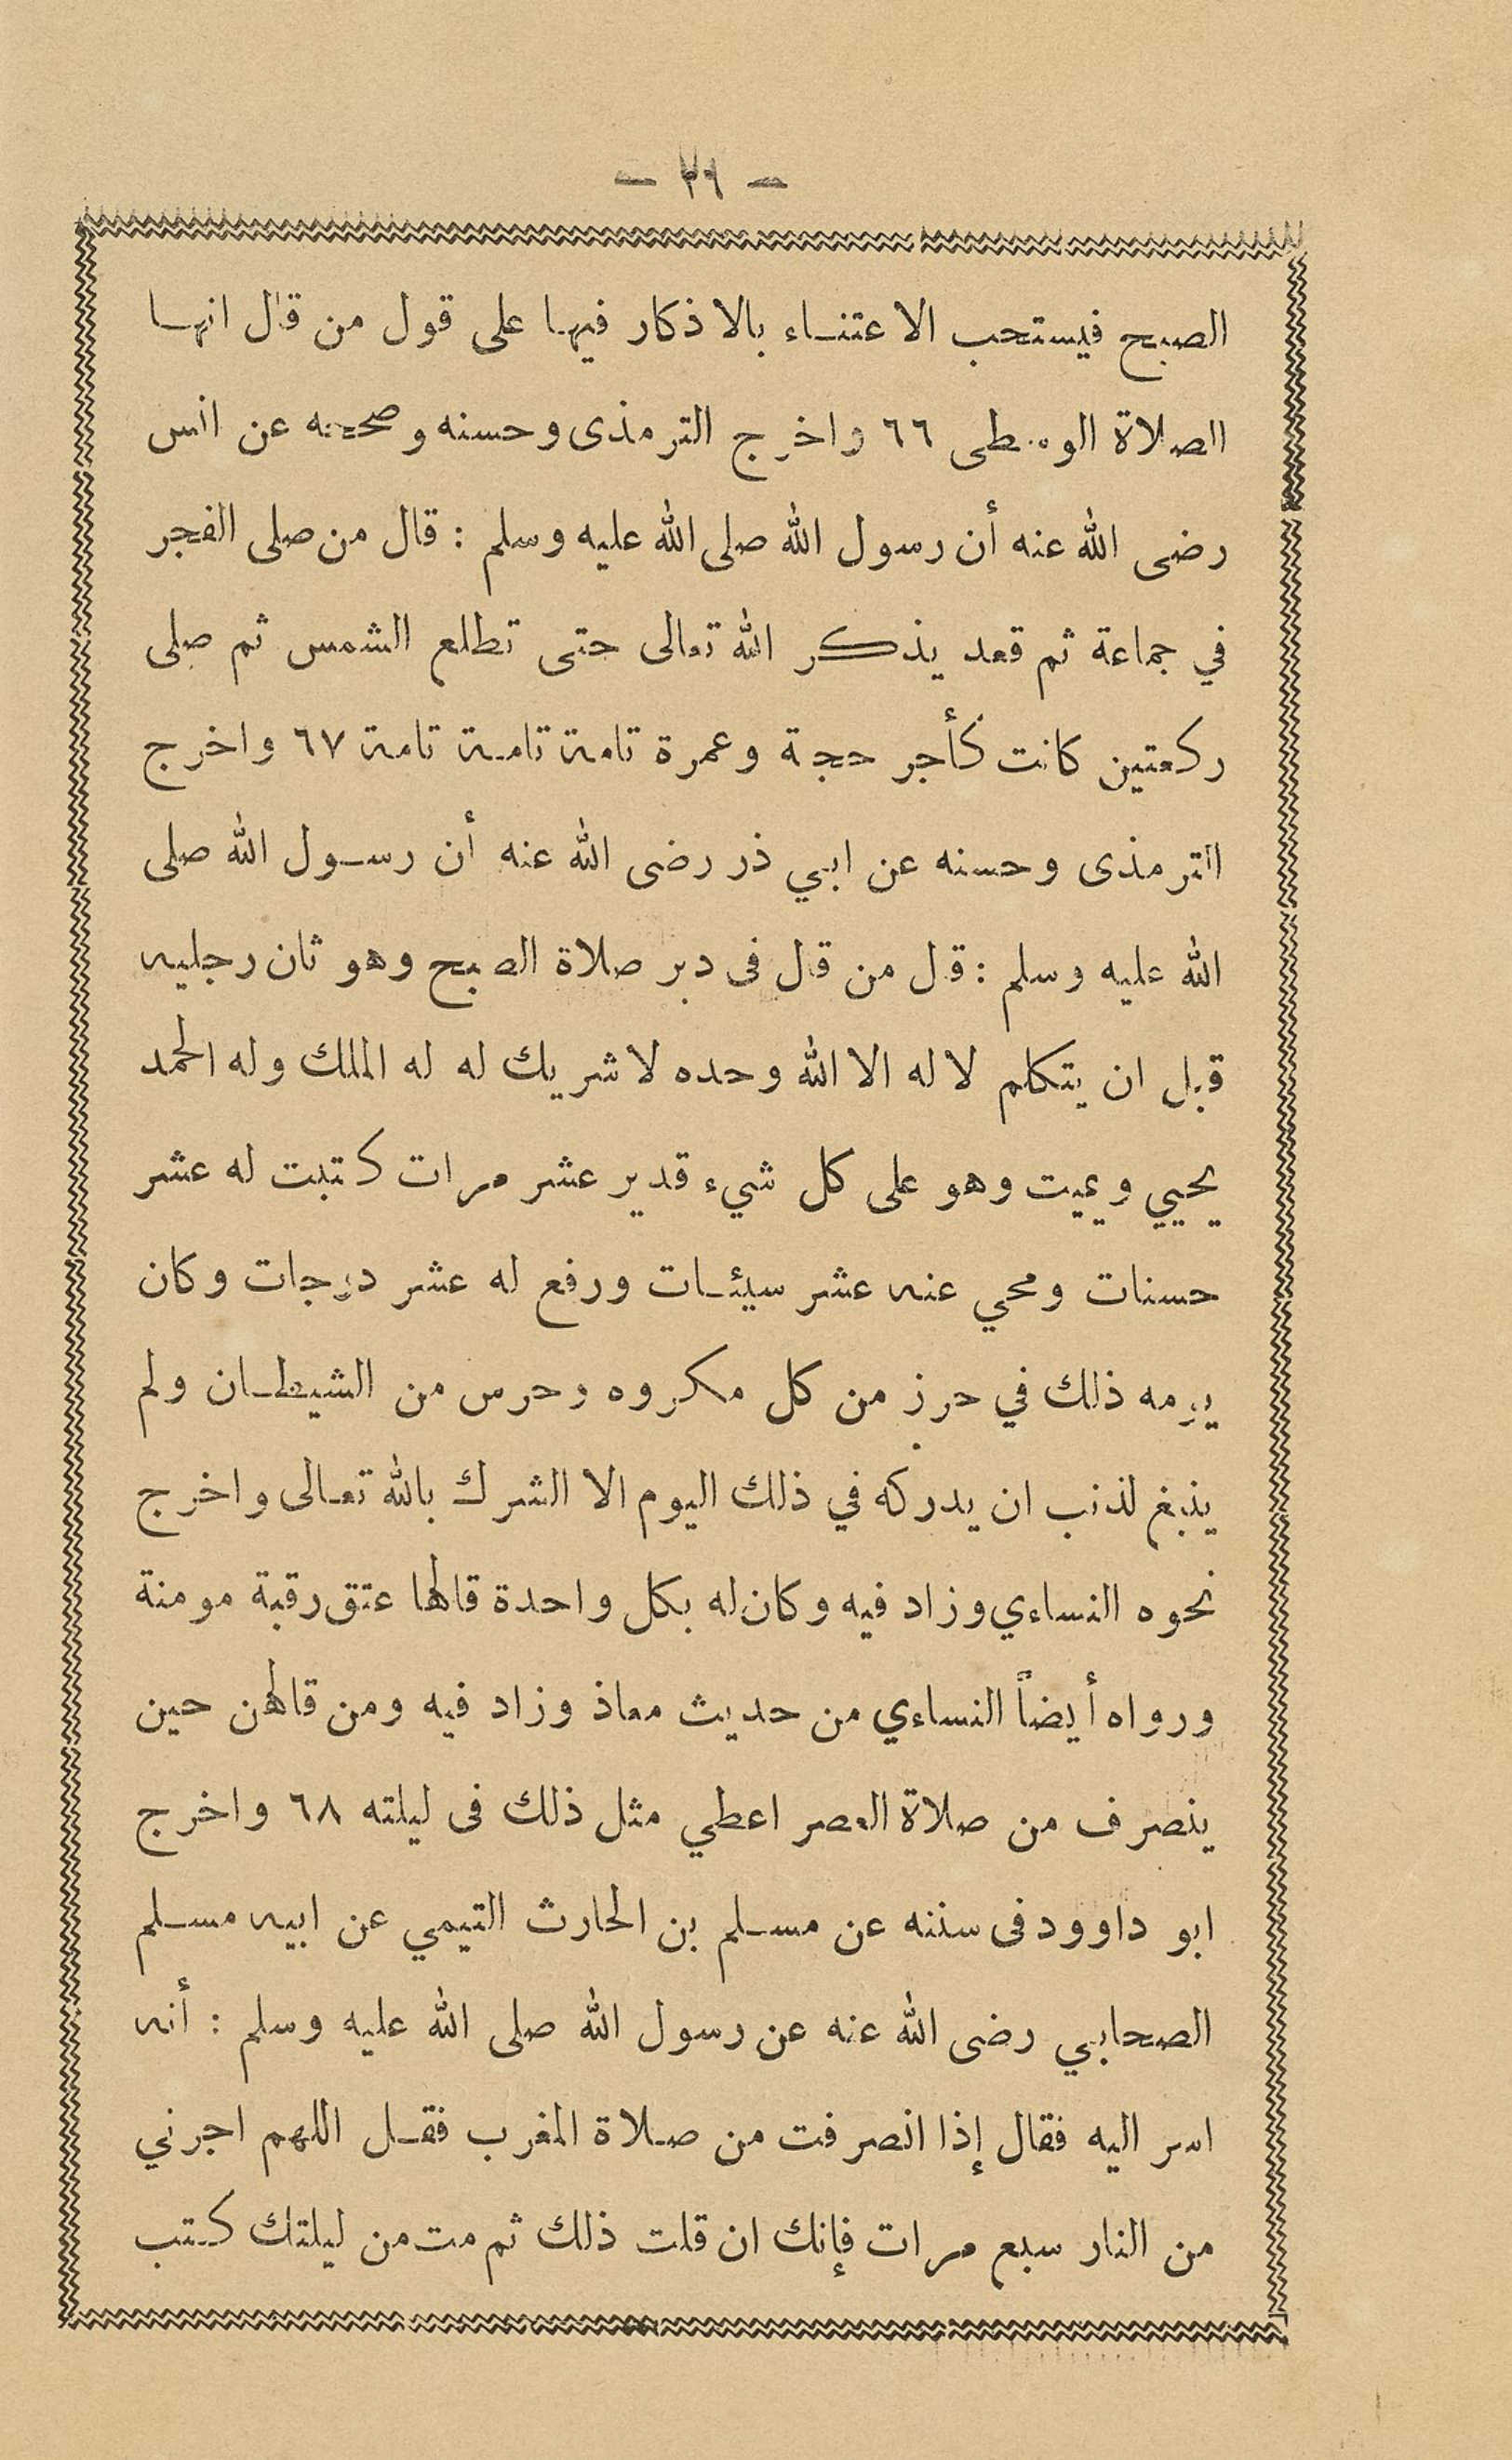 - ٢٦ -
الصبح فيستحب الاعتناء بالاذكار فيها على قول من قال انها
الصلاة الوسطى ٦٦ واخرج الترمذى وحسنه وصححه عن انس
رضى الله عنه أن رسول الله صلى الله عليه وسلم : قال من صلى الفجر
في جماعة ثم قعد يذكر الله تعالى حتى تطلع الشمس ثم صلى
ركعتين كانت كأجر حجة وعمرة تامة تامة تامة ٦٧ واخرج
الترمذى وحسنه عن ابي ذر رضى الله عنه أن رسول الله صلى
الله عليه وسلم : قل من قال فى دبر صلاة الصبح وهو ثان رجليه
قبل ان يتكلم لا له الا الله وحده لا شريك له له الملك وله الحمد
يحيي ويميت وهو على كل شيء قدير عشر مرات كتبت له عشر
حسنات ومحي عنه عشر سيئات ورفع له عشر درجات وكان
يومه ذلك في حرز من كل مكروه وحرس من الشيطان ولم
ينبغ لذنب ان يدركه في ذلك اليوم الا الشرك بالله تعالى واخرج
نحوه النساءي وزاد فيه وكان له بكل واحدة قالها عتق رقبة مومنة
ورواه أيضاً النساءي من حديث معاذ وزاد فيه ومن قالهن حين
ينصرف من صلاة العصر اعطي مثل ذلك فى ليلته ٦٨ واخرج
ابو داوود فى سننه عن مسلم بن الحارث التيمي عن ابيه مسلم
الصحابي رضى الله عنه عن رسول الله صلى الله عليه وسلم : أنه
اسر اليه فقال إذا انصرفت من صلاة المغرب فقل اللهم اجرني
من النار سبع مرات فإنك ان قلت ذلك ثم مت من ليلتك كتب